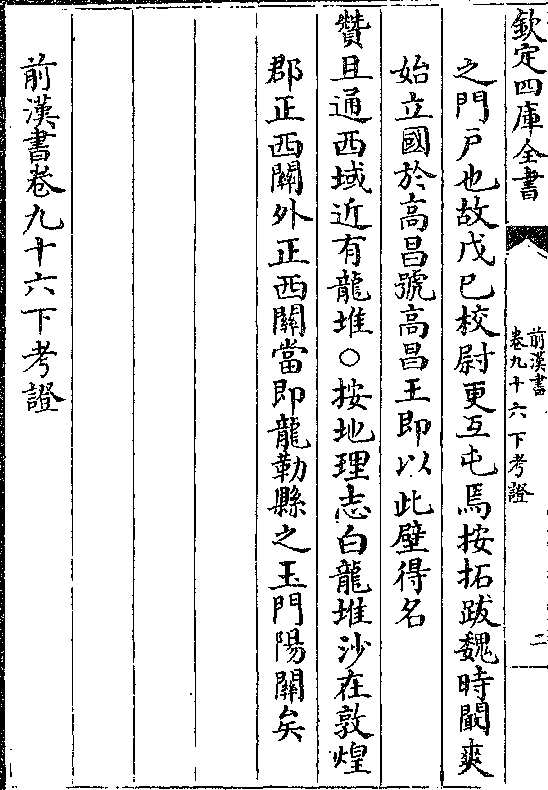 欽定四庫全書
前漢書
卷九十六下考證
二
之門戸也故戊已校尉更互屯焉按拓跋魏時闞爽
始立國於高昌號高昌王即以此壁得名
贊且通西域近有龍堆○按地理志白龍堆沙在敦煌
郡正西關外正西關當即龍勒縣之玉門陽關矣
前漢書卷九十六下考證